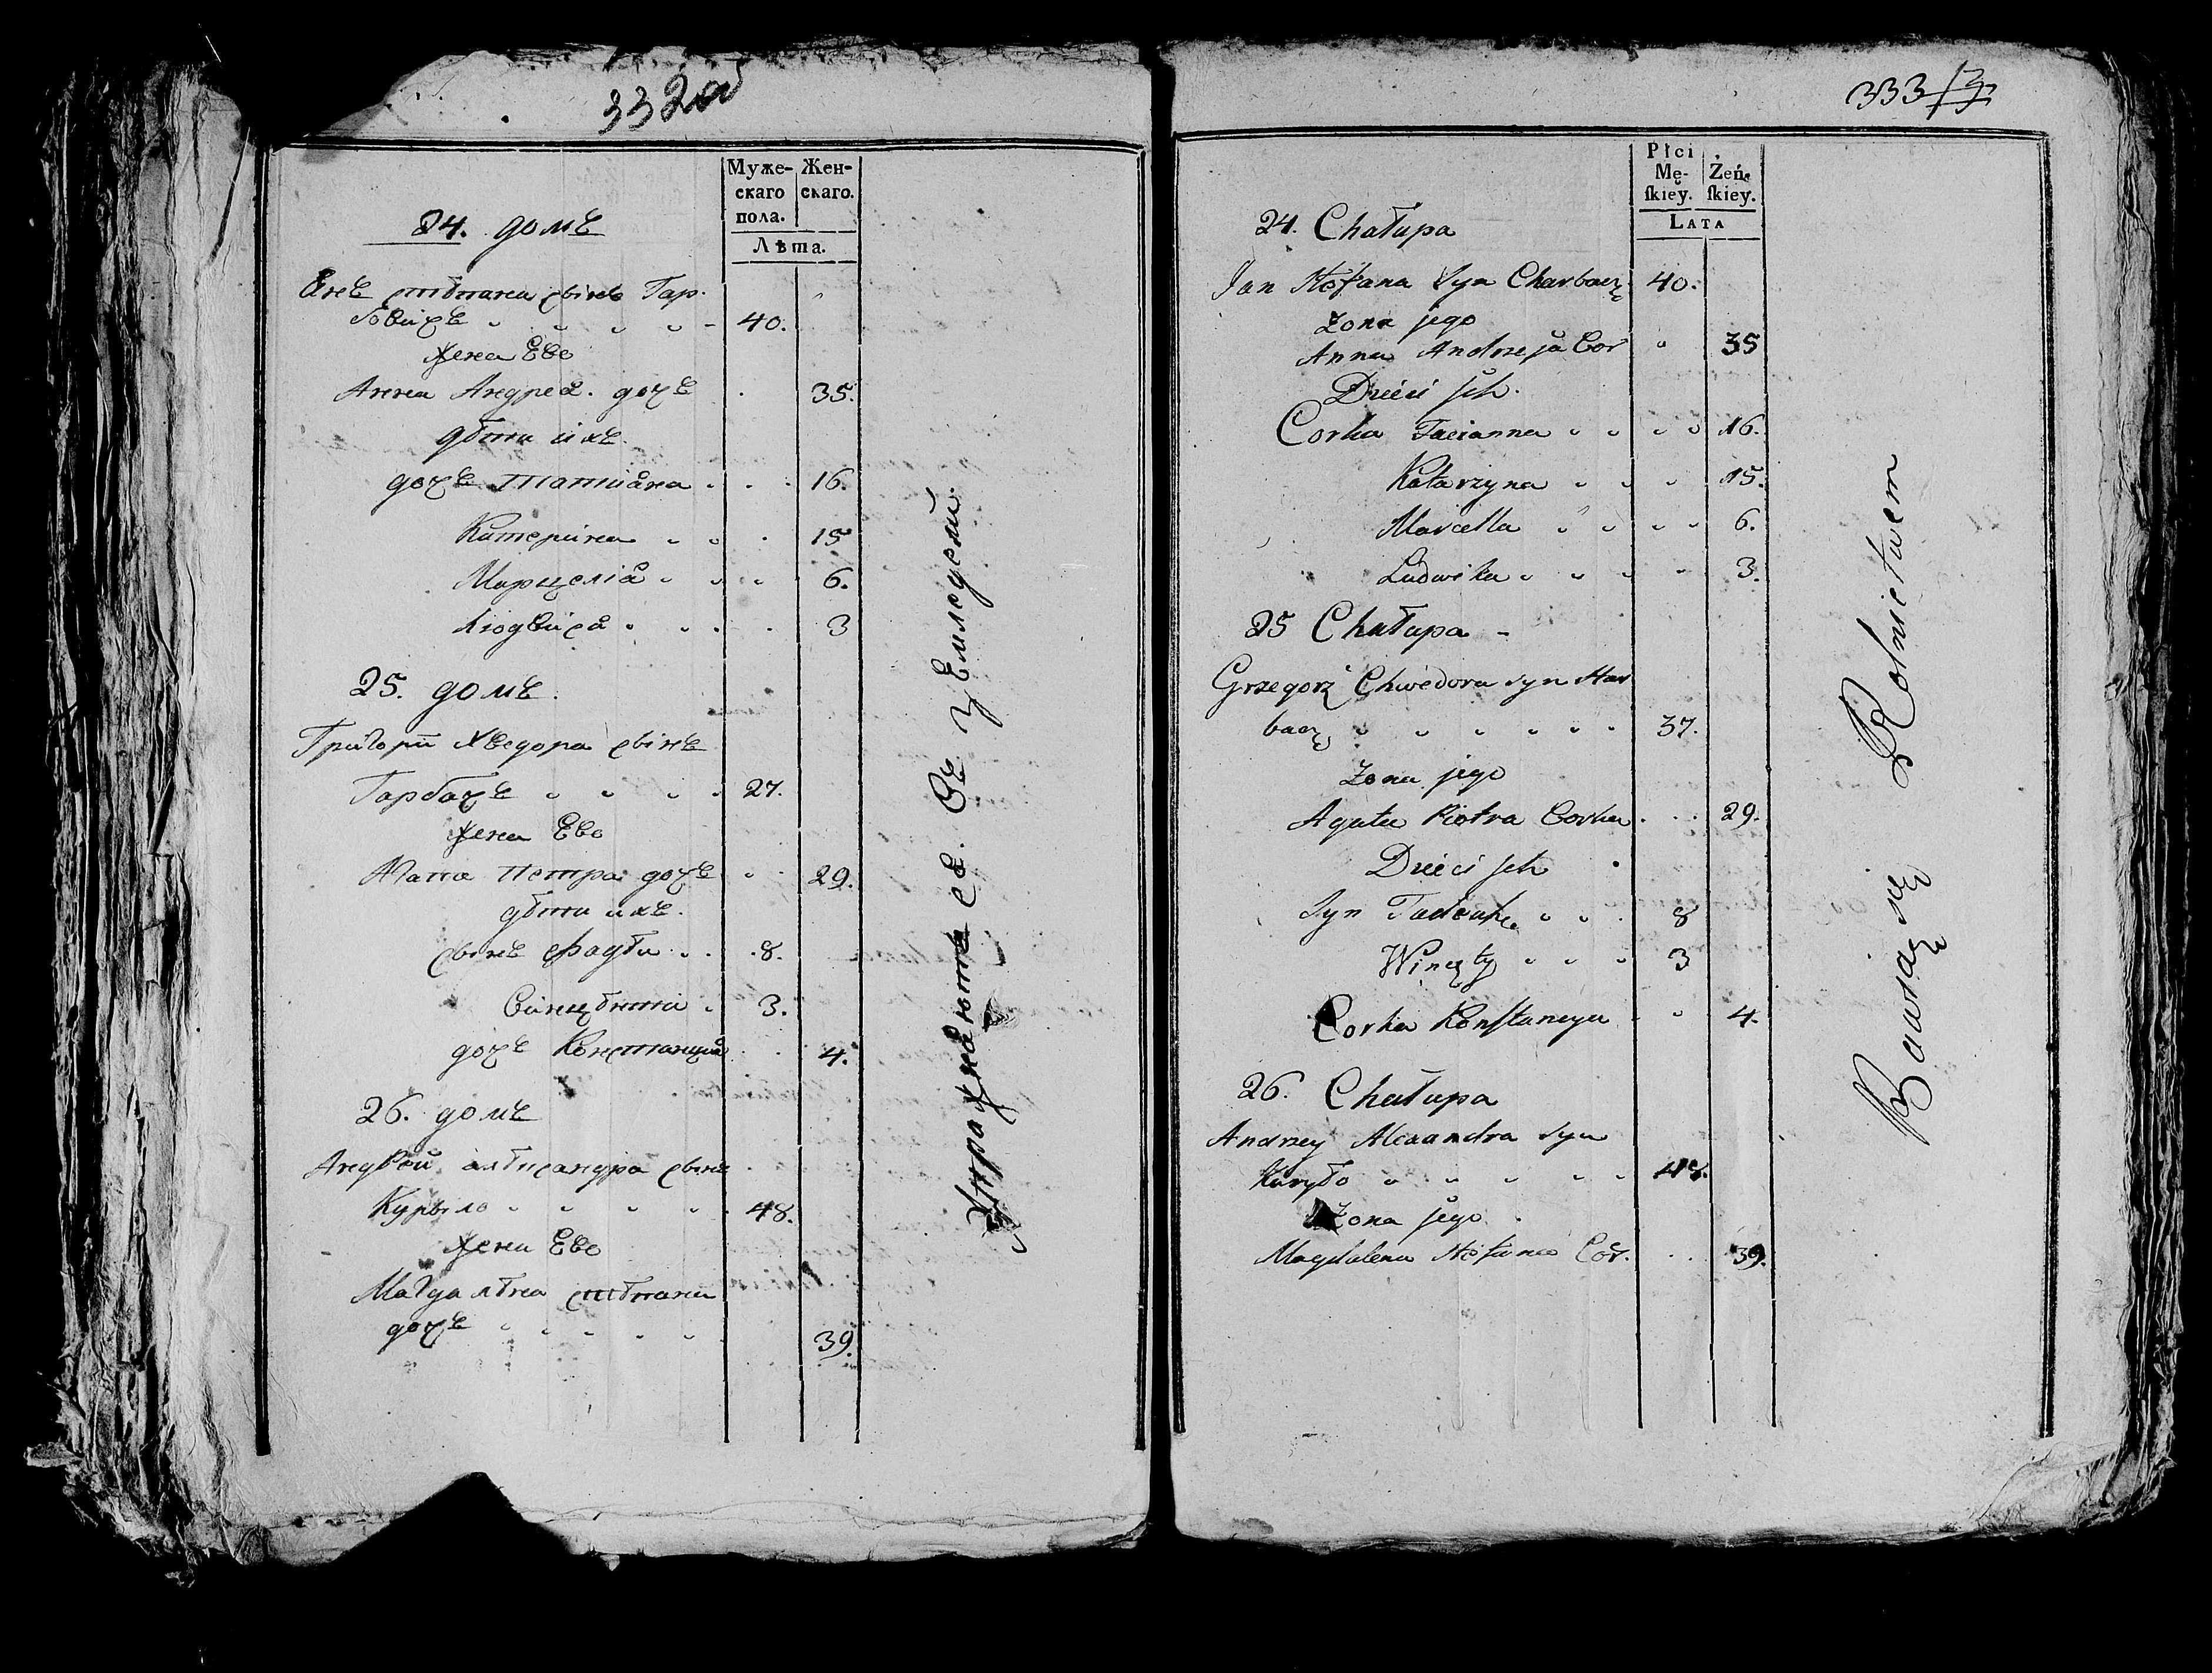 332об
Муже-
скаго
пола.
Жен-
скаго.
Лѣта.
24. домъ
Янъ стѣпана сынъ Гар-
бачъ 40.
жена Ево
Анна Андрея дочъ 35.
дѣти ихъ
дочъ татияна 16.
Катерина 15
Марцелія 6.
Людвися 3
25. домъ.
Григорiй хведора сынъ
Гарбачъ 27.
жена Ево
Агапа петра дочъ 29.
дѣти ихъ.
сынъ фадѣи 8.
Винцѣнти 3.
дочъ Констанция 4.
26. домъ
Андрей алѣксандра сынъ
Курыло 48.
жена Ево
Магдалѣна стѣпана
дочъ 39.
Упражняются съ земледелі.
333
Płci
Mę-
ſkiey.
Żeń-
ſkiey.
LATA
24. Chałupa
Jan Stefana Syn Charbacz 40.
Zona jego
Anna Andrzeja Cor 35
Dzieci jch.
Corka Tacianna 16.
Katarzyna 15.
Marcella 6.
Ludwika 3.
25 Chałupa
Grzegorz Chwedora syn Har
bacz 37.
Zona jego
Agata Piotra Corka 29.
Dzieci jch
Syn Tadeusz 8
Wincęty 3
Corka Konstancya 4.
26. Chałupa
Andrzey Alexandra Syn
Kuryło 48.
Zona jego
Magdalena Stefana Cor. 39.
Bawią się Rolnictwem